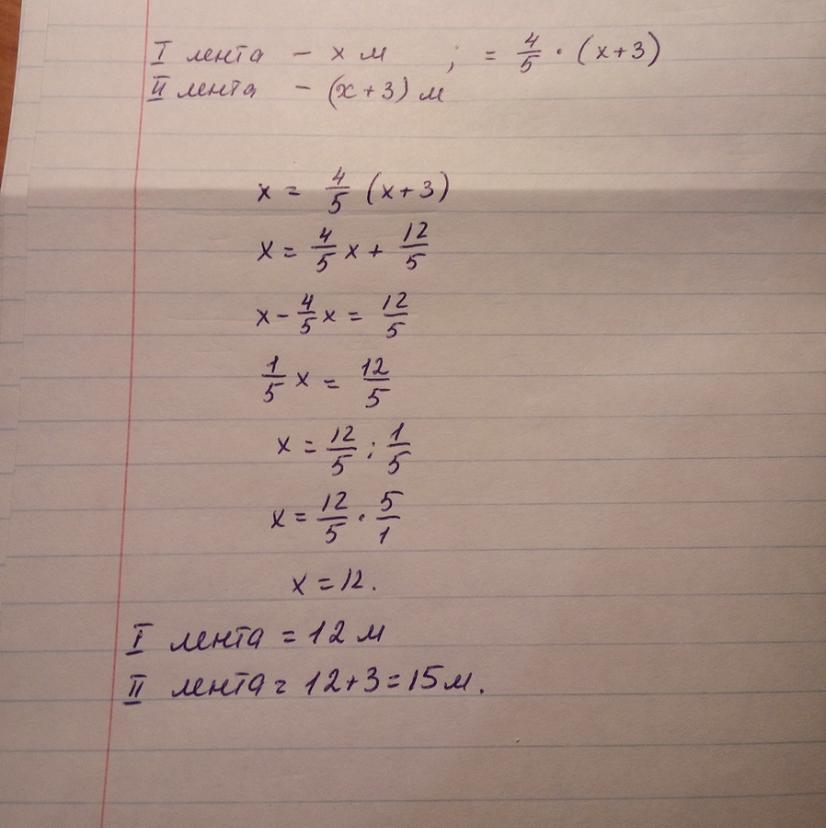 I лента – x м ; = 4/5 · (x+3)
II лента – (x+3) м
x = 4/5 (x+3)
x = 4/5 x + 12/5
x - 4/5 x = 12/5
1/5 x = 12/5
x = 12/5 : 1/5
x = 12/5 · 5/1
x = 12.
I лента = 12 м
II лента = 12+3=15м.